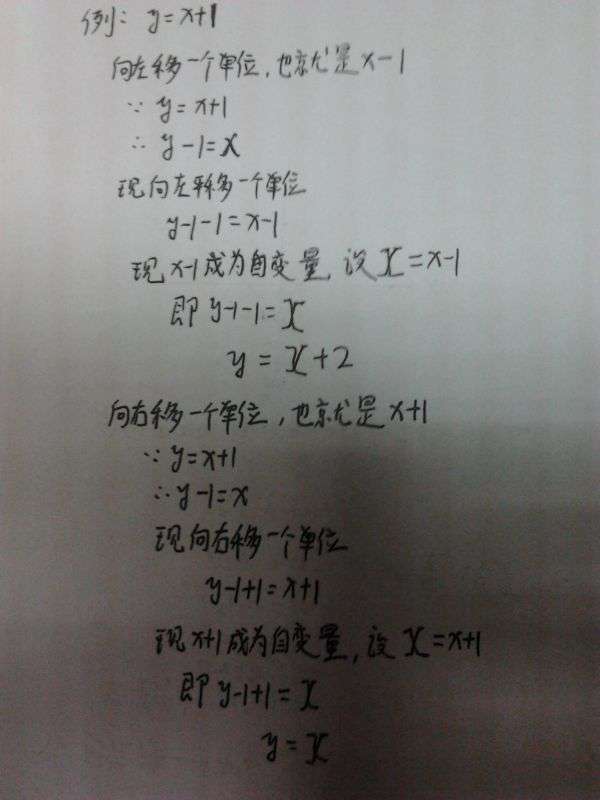 例: y=x+1
向左移一个单位,也就是x-1
∵ y=x+1
∴ y-1=x
现向左平移一个单位
y-1-1=x-1
现x-1成为自变量,设X=x-1
即 y-1-1=X
y=X+2
向右移一个单位,也就是x+1
∵ y=x+1
∴ y-1=x
现向右移一个单位
y-1+1=x+1
现x+1成为自变量,设X=x+1
即 y-1+1=X
y=X